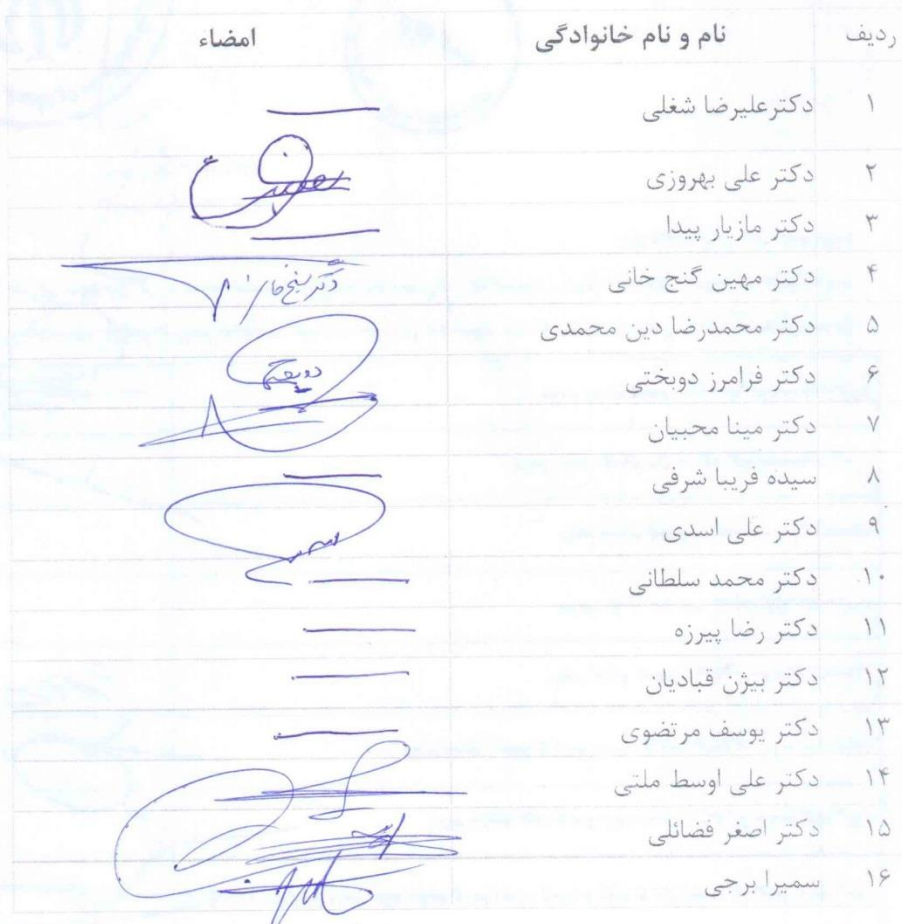 ردیف نام و نام خانوادگی امضاء
۱ دکترعلیرضا شغلی
۲ دکتر علی بهروزی
۳ دکتر مازیار پیدا
۴ دکتر مهین گنج خانی
۵ دکتر محمدرضا دین محمدی
۶ دکتر فرامرز دوبختی
۷ دکتر مینا محبیان
۸ سیده فریبا شرفی
۹ دکتر علی اسدی
۱۰ دکتر محمد سلطانی
۱۱ دکتر رضا پیرزه
۱۲ دکتر بیژن قبادیان
۱۳ دکتر یوسف مرتضوی
۱۴ دکتر علی اوسط ملتی
۱۵ دکتر اصغر فضائلی
۱۶ سمیرا برجی